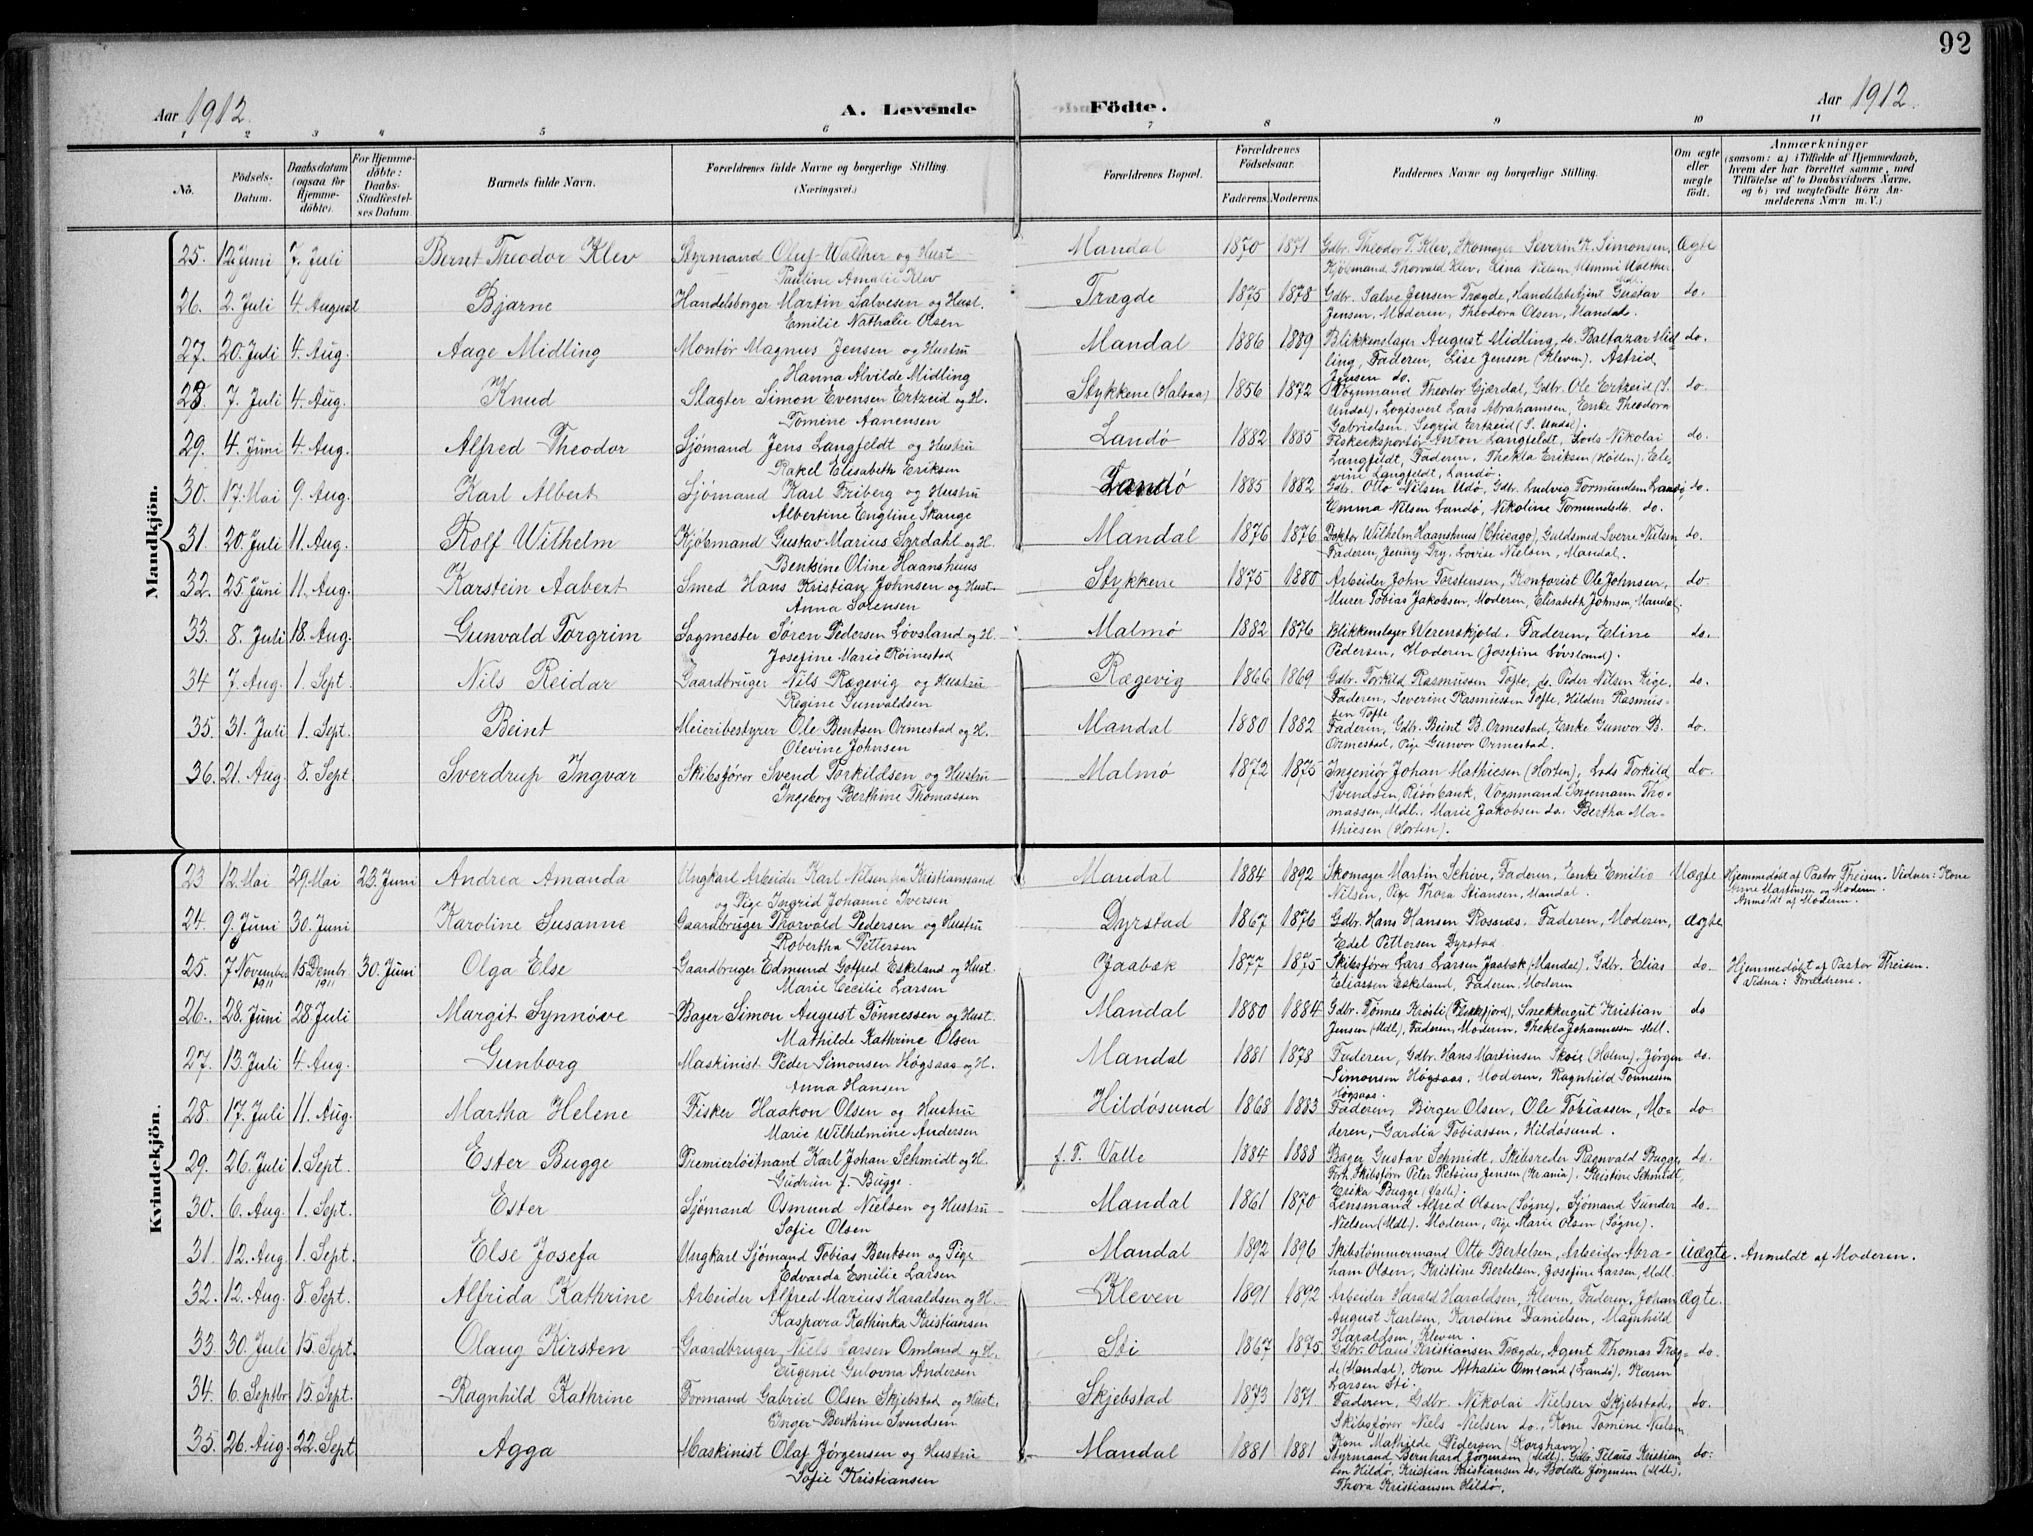 92
Aar 1912. A. Levende Födte. Aar 1912.
1 2 3 4 5 6 7 8 9 10 11
No. Födsels-Datum. Daabsdatum (ogsaa for Hjemmedöbte). For Hjemmedöbte: Daabs-Stadfæstelses Datum Barnets fulde Navn. Forældrenes fulde Navne og borgerlige Stilling. (Næringsvei.) Forældrenes Bopæl. Forældrenes Födselsaar. Faderens. Moderens. Faddernes Navne og borgerlige Stilling. Om ægte eller uægte födt. Anmærkninger (saasom: a) i Tilfælde af Hjemmedaab, hvem der har forrettet samme, med Tilföielse af to Daabsvidners Navne, og b) ved uægtefödte Börn Anmelderens Navn m. V.)
Mandkjön.
25. 12 Juni 7. Juli Bernt Theodor Klev Styrmand Oluf Walther og Hust. Mandal 1870 1871 Gdbr. Theodor T. Klev, Skomager Severin K. Simonsen, Ægte
Pauline Amalie Klev Kjöbmand Thorvald Klev, Lina Nielsen, Mimmi Walther
26. 2. Juli 4. August Bjarne Handelsborger Martin Salvesen og Hust. Trægde 1875 1878 Gdbr. Salve Jensen Trægde, Handelsbetjent Gustav do.
Emilie Nathalie Olsen Jensen, Moderen, Theodora Olsen, Mandal.
27. 20. Juli 4. Aug. Aage Midling Montör Magnus Jensen og Hustru Mandal 1886 1889 Blikkenslager August Midling, do. Baltazar Mid- do.
Hanna Alvilde Midling ling, Faderen, Lise Jensen (Kleven). Astrid
Jensen do.
28. 7. Juli 4. Aug. Knud Slagter Simon Evensen Ertzeid og H. Stykkene (Halsaa) 1856 1872 Vognmand Theodor Gjærdal, Gdbr. Ole Ertzeid (S. do.
Tomine Aanensen Undal), Logisvert Lars Abrahamsen, Enke Theodora
Gabrielsen, Sigrid Ertzeid (S. Undal).
29. 4. Juni 4. Aug. Alfred Theodor Sjömand Jens Langfeldt og Hustru Landö 1882 1885 Fiskeeksportör Anton Langfeldt, Lods Nikolai do.
Rakel Elisabeth Eriksen Langfeldt, Faderen, Thekla Eriksen (Hollen). Ele-
vine Langfeldt, Landö.
30. 17. Mai 9. Aug. Karl Albert Sjömand Karl Friberg og Hustru Landö 1885 1882 Gdbr. Otto Nilsen Udö, Gdbr. Ludvig Tormundsen Landö do.
Albertine Engline Skauge Emma Nilsen Landö, Nikoline Tormundsen do.
31. 20. Juli 11. Aug. Rolf Wilhelm Kjöbmand Gustav Marius Syrdahl og H. Mandal 1876 1876 Doktor Wilhelm Haanshuus (Chicago), Guldsmed Sverre Nilsen do.
Bentsine Oline Haanshuus Faderen, Jenny Try. Lovise Nielsen, Mandal.
32. 25. Juni 11. Aug. Karstein Aabert Smed Hans Kristian Johnsen og Hust. Stykkene 1875 1880 Arbeider John Torstensen, Kontorist Ole Johnsen, do
Anna Sörensen Murer Tobias Jakobsen, Moderen, Elisabeth Johnsen, Mandal.
33. 8. Juli 18. Aug. Gunvald Torgrim Sagmester Sören Pedersen Lövsland og H. Malmö 1882 1876 Blikkenslager Werenskjold, Faderen, Eline do.
Josefine Marie Röinestad Pedersen, Moderen (Josefine Lövsland).
34 7. Aug. 1. Sept. Nils Reidar Gaardbruger Nils Rægevig og Hustru Rægevig 1866 1869 Gdbr. Torkild Rasmussen Tofte, do. Peder Nilsen Kige, do.
Regine Gunvaldsen Faderen, Severine Rasmussen Tofte, Hildur Rasmus-
sen Tofte
35. 31. Juli 1. Sept. Beint Meieribestyrer Ole Bentsen Ormestad og H. Mandal 1880 1882 Faderen, Gdbr. Beint B. Ormestad, Enke Gunvor B. do.
Olevine Johnsen Ormestad, Pige Gunvor Ormestad.
36. 21. Aug. 8. Sept Sverdrup Ingvar Skibsförer Svend Torkildsen og Hustru Malmö 1872 1875 Ingeniör Johan Mathiesen (Horten), Lods Torkild do.
Ingeborg Berthine Thomassen Svendsen Risörbank, Vognmand Ingemann Tho-
massen, Mdl., Marie Jakobsen do., Bertha Ma-
thiesen (Horten).
Kvindekjön.
23 12. Mai 29. Mai 23. Juni Andrea Amanda Ungkarl Arbeider Karl Nilsen fra Kristianssand Mandal 1884 1892 Skomager Martin Schive, Faderen, Enke Emilie Uægte Hjemmedöbt af Pastor Theisen. Vidner: Kone
og Pige Ingrid Johanne Iversen Nilsen, Pige Thora Stiansen, Mandal. Anne Martinsen og Moderen.
Anmeldt af Moderen.
24. 9. Juni 30. Juni Karoline Susanne Gaardbruger Thorvald Pedersen og Hustru Dyrstad 1867 1876 Gdbr. Hans Hansen Rosnæs. Faderen, Moderen, Ægte
Robertha Pettersen Edel Pettersen Dyrstad
25. 7 November 1911 15 Dembr. 1911 30. Juni Olga Else Gaardbruger Edmund Gotfred Eskeland og Hust. Jaabæk 1877 1875 Skibsförer Lars Larsen Jaabæk (Mandal). Gdbr. Elias do. Hjemmedöbt af Pastor Theisen.
Marie Cecilie Larsen Eliassen Eskeland, Faderen, Moderen Vidner: Forældrene.
26. 28. Juni 28 Juli Margit Synnöve Bager Simon August Tönnessen og Hust. Mandal 1880 1884 Gdbr. Tönnes Krösli (Flekkefjord), Snekkergut Kristian do
Mathilde Kathrine Olsen Jensen (Mdl), Faderen, Moderen, Thekla Johannessen Mdl.
27. 13. Juli 4. Aug. Gunborg Maskinist Peder Simonsen Högsaas og H. Mandal 1881 1878 Faderen, Gdbr. Hans Martinsen Skoie (Holme), Jörgen do.
Anna Hansen Simonsen Högsaas, Moderen, Ragnhild Tönnessen
Högsaas.
28. 17. Juli 11. Aug. Martha Helene Fisker Haakon Olsen og Hustru Hildösund 1868 1883 Faderen, Birger Olsen, Ole Tobiassen, Mo- do.
Marie Wilhelmine Andersen deren, Gardia Tobiassen, Hildösund.
29. 26. Juli 1. Sept. Ester Bugge Premierlöitnant Karl Johan Schmidt og H. f. T. Valle 1884 1888 Bager Gustav Schmidt, Skibsreder Ragnvald Bugge, do.
Gudrun f. Bugge. Forh. Skibsförer Peter Pletsius Jensen (Kr.ania). Kristine Schmidt,
Erika Bugge (Valle).
30. 6. Aug. 1. Sept. Ester Sjömand Osmund Nielsen og Hustru Mandal 1861 1870 Lensmand Alfred Olsen (Sögne), Sjömand Gunder do.
Sofie Olsen Nielsen (Mdl). Moderen, Pige Marie Olsen (Sögne).
31. 12. Aug. 1. Sept. Else Josefa Ungkarl Sjömand Tobias Bentsen og Pige Mandal 1892 1896 Skibstömmermand Otto Bertelsen, Arbeider Abra- Uægte. Anmeldt af Moderen.
Edvarda Emilie Larsen ham Olsen, Kristine Bertelsen, Josefine Larsen, Mdl.
32. 12. Aug. 8. Sept. Alfrida Kathrine Arbeider Alfred Marius Haraldsen og H. Kleven 1891 1892 Arbeider Harald Haraldsen, Kleven, Faderen, Johan Ægte.
Kaspara Kathinka Kristiansen August Karlsen, Karoline Danielsen, Magnhild
Haraldsen, Kleven.
33. 30. Juli 15. Sept. Olaug Kirsten Gaardbruger Niels Larsen Omland og H. Sti 1867 1875 Gdbr. Olaus Kristiansen Trægde, Agent Thomas Træg- do.
Eugenie Gulovna Andersen de (Mandal), Kone Athalie Omland (Landö), Karen
Larsen Sti.
34. 6. Septbr. 15. Sept. Ragnhild Kathrine Formand Gabriel Olsen Skjebstad og Hust. Skjebstad 1873 1871 Faderen, Gdbr. Nikolai Nielsen Skjebstad, do.
Inger Berthine Svendsen Skibsförer Niels Nielsen do., Kone Tomine Nielsen
Kone Mathilde Pedersen (Korshavn)
35. 26. Aug. 22. Sept. Agga Maskinist Olaf Jörgensen og Hustru Mandal 1881 1881 Styrmand Bernhard Jörgensen (Mdl). Gdbr. Tilaus Kristian- do.
Sofie Kristiansen sen Hildö, Kristian Kristiansen do., Bolette Jörgensen (Mdl),
Thora Kristiansen Hildö.